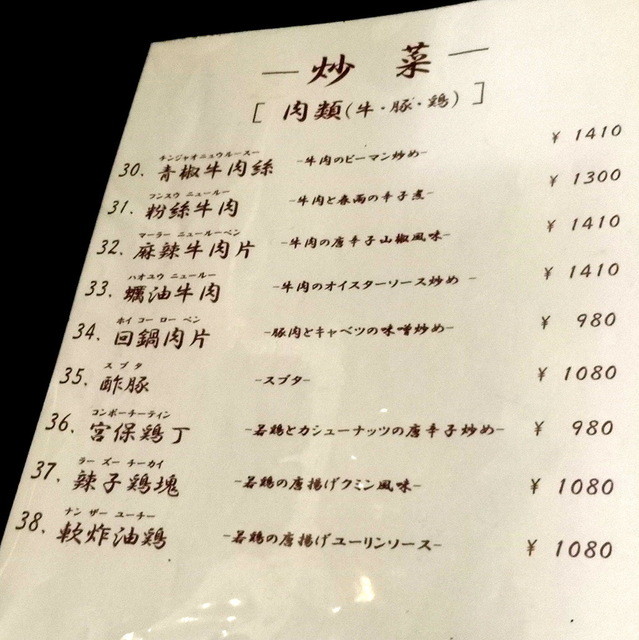 — 炒 菜 —
[ 肉類(牛・豚・鶏) ]
チンジャオニュウルースー
30. 青椒牛肉絲 -牛肉のピーマン炒め- ¥ 1410
フンスウ ニュールー
31. 粉絲牛肉 -牛肉と春雨の辛子煮- ¥ 1300
マーラー ニュールーペン
32. 麻辣牛肉片 -牛肉の唐辛子山椒風味- ¥ 1410
ハオユウ ニュールー
33. 蠣油牛肉 -牛肉のオイスターソース炒め - ¥ 1410
ホイ コー ロー ペン
34. 回鍋肉片 -豚肉とキャベツの味噌炒め- ¥ 980
スブタ
35. 酢豚 -スブタ- ¥ 1080
コンポーチーティン
36. 宮保鶏丁 -若鶏とカシューナッツの唐辛子炒め- ¥ 980
ラー ズー チーカイ
37. 辣子鶏塊 -若鶏の唐揚げクミン風味- ¥ 1080
ナン ザー ユーチー
38. 軟炸油鶏 -若鶏の唐揚げユーリンソース- ¥ 1080